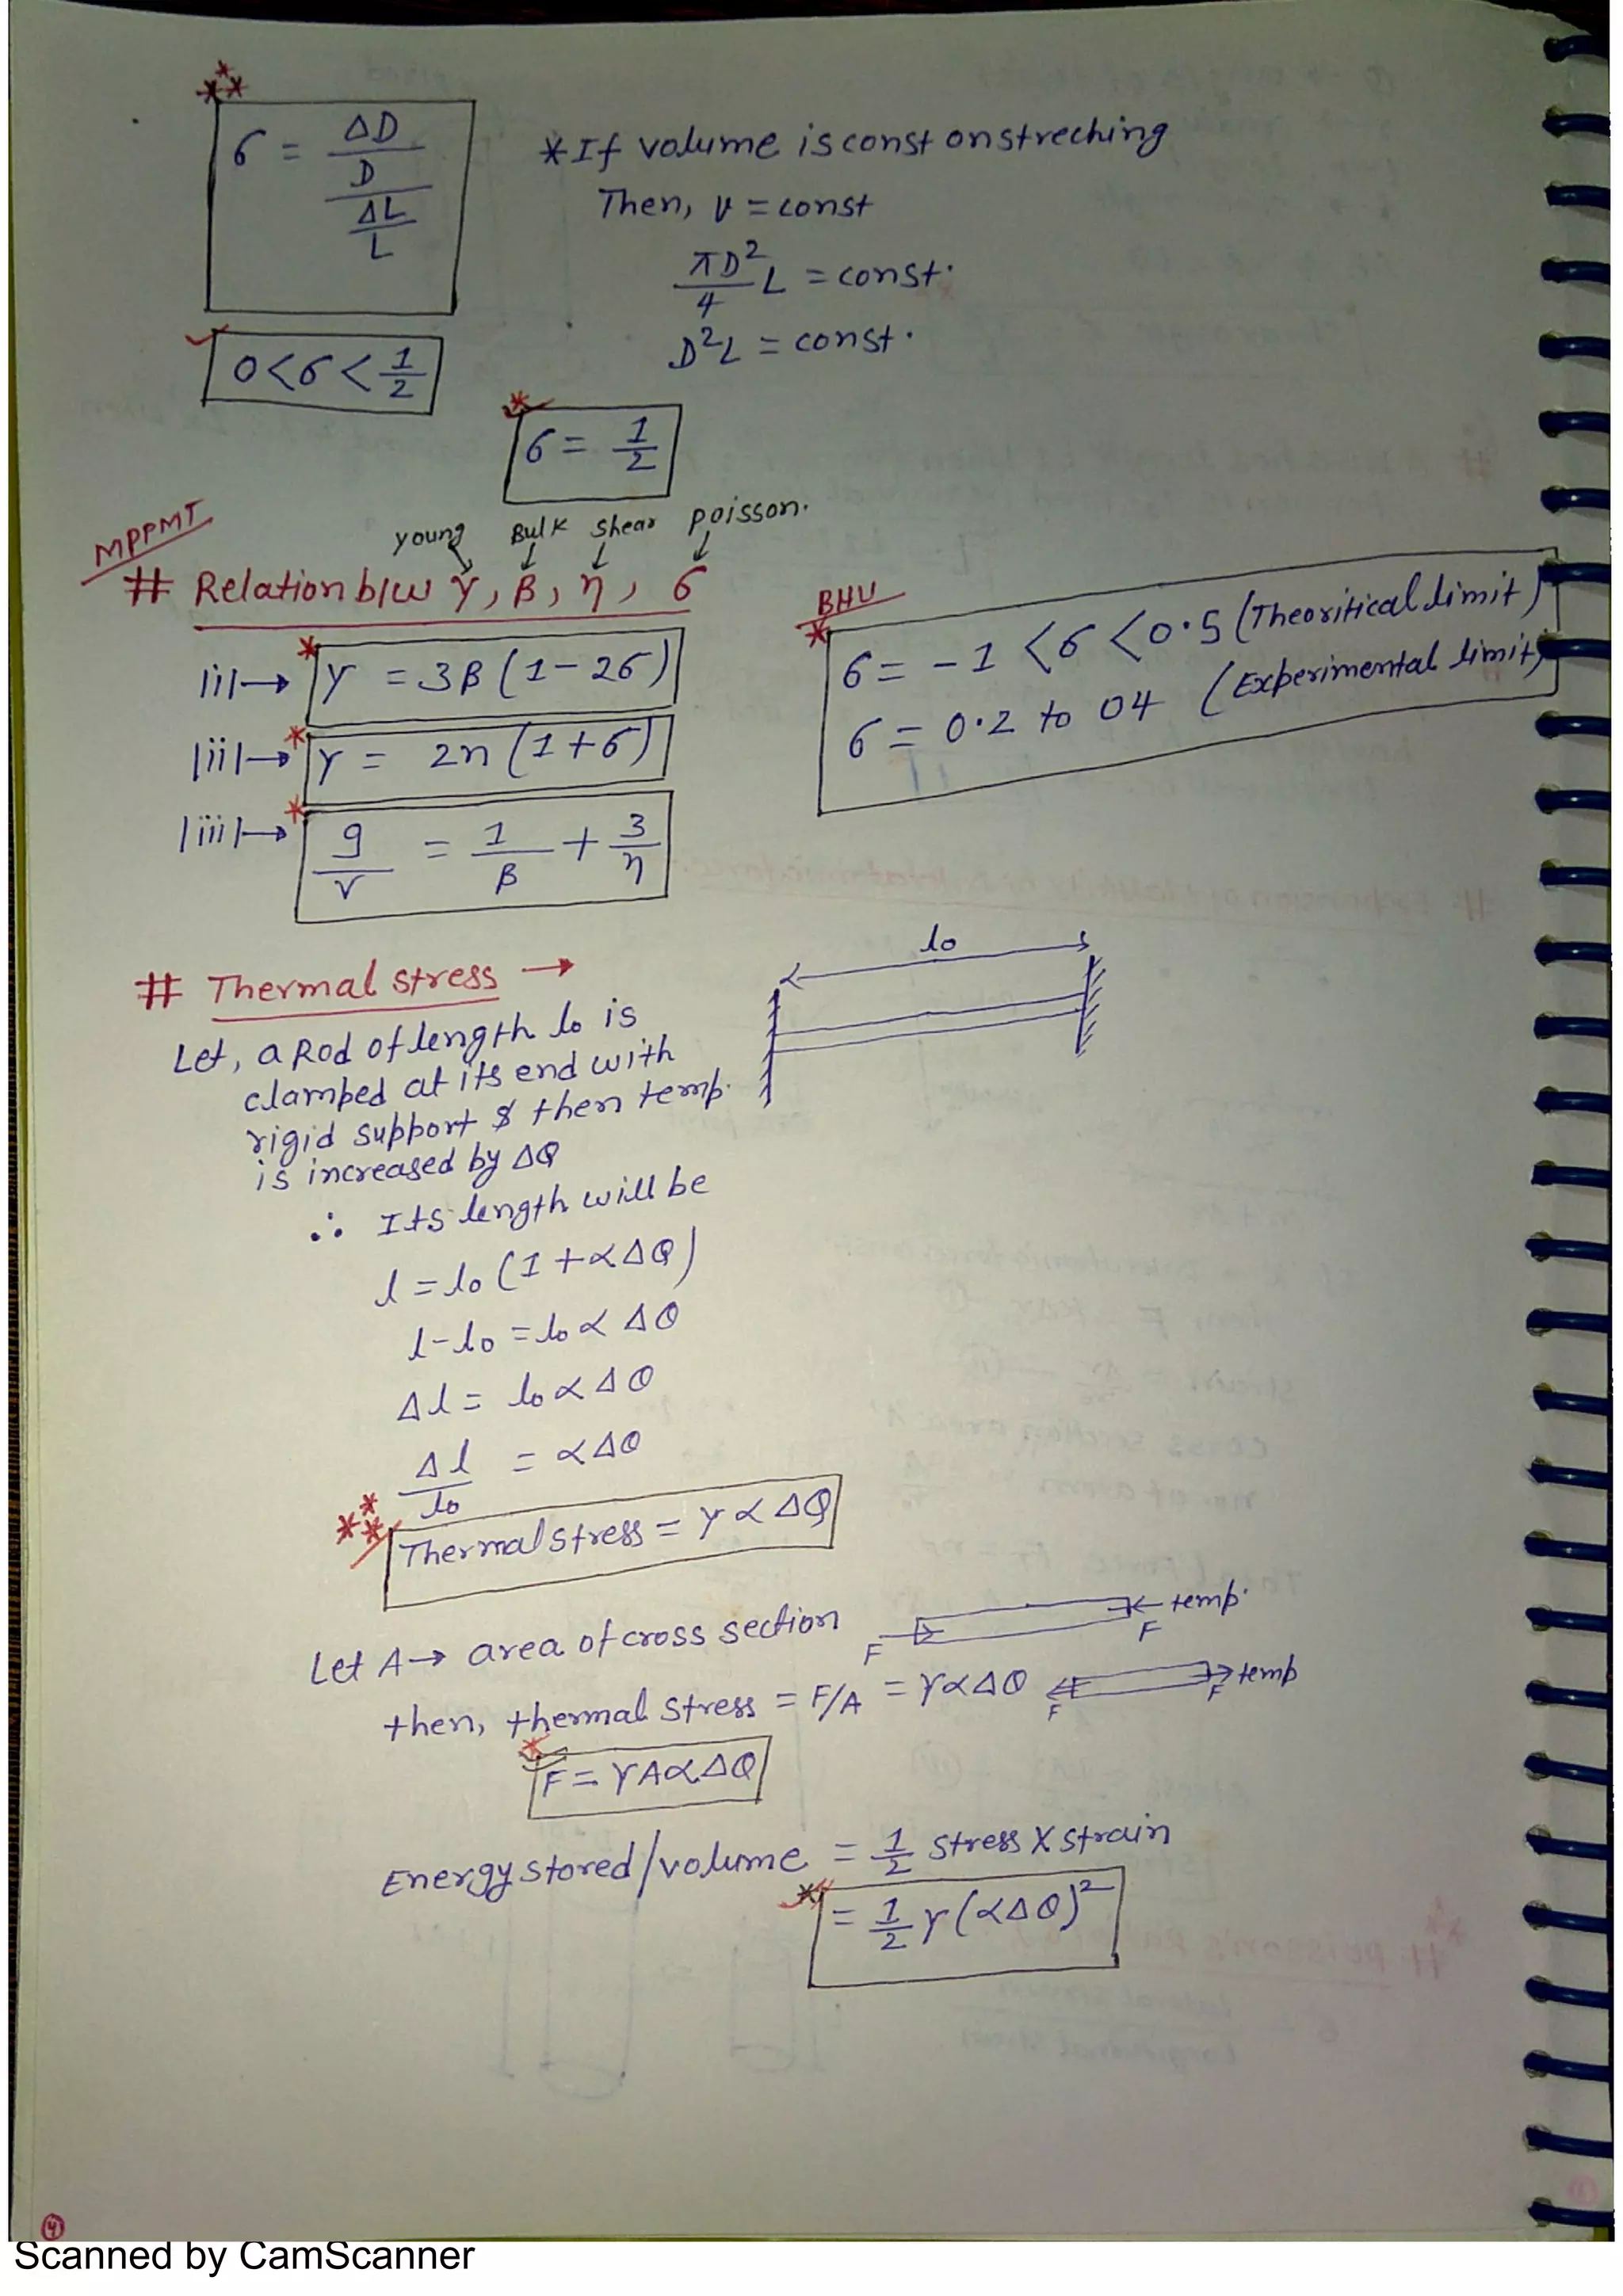 σ = ΔD/D / ΔL/L
* If volume is const on streching
Then, V = const
πD²/4 L = const.
D²L = const.
0 < σ < 1/2
σ = 1/2
MPPMT
young Bulk shear poisson.
# Relation b/w Y, β, η, σ
BHU
|i|→ Y = 3β (1 - 2σ)
|ii|→ Y = 2η (1 + σ)
|iii|→ 9/Y = 1/β + 3/η
σ = -1 < σ < 0.5 (Theoritical limit)
σ = 0.2 to 04 (Experimental limit)
# Thermal stress →
l₀
Let, a Rod of length l₀ is
clamped at its end with
rigid support & then temp.
is increased by Δθ
∴ Its length will be
l = l₀ (1 + αΔθ)
l - l₀ = l₀ α Δθ
Δl = l₀ α Δθ
Δl/l₀ = αΔθ
Thermal stress = Y α Δθ
Let A → area of cross section
F F temp.
then, thermal stress = F/A = YαΔθ
F F temp
F = YAαΔθ
Energy stored/volume = 1/2 stress X strain
= 1/2 Y(αΔθ)²
4
Scanned by CamScanner